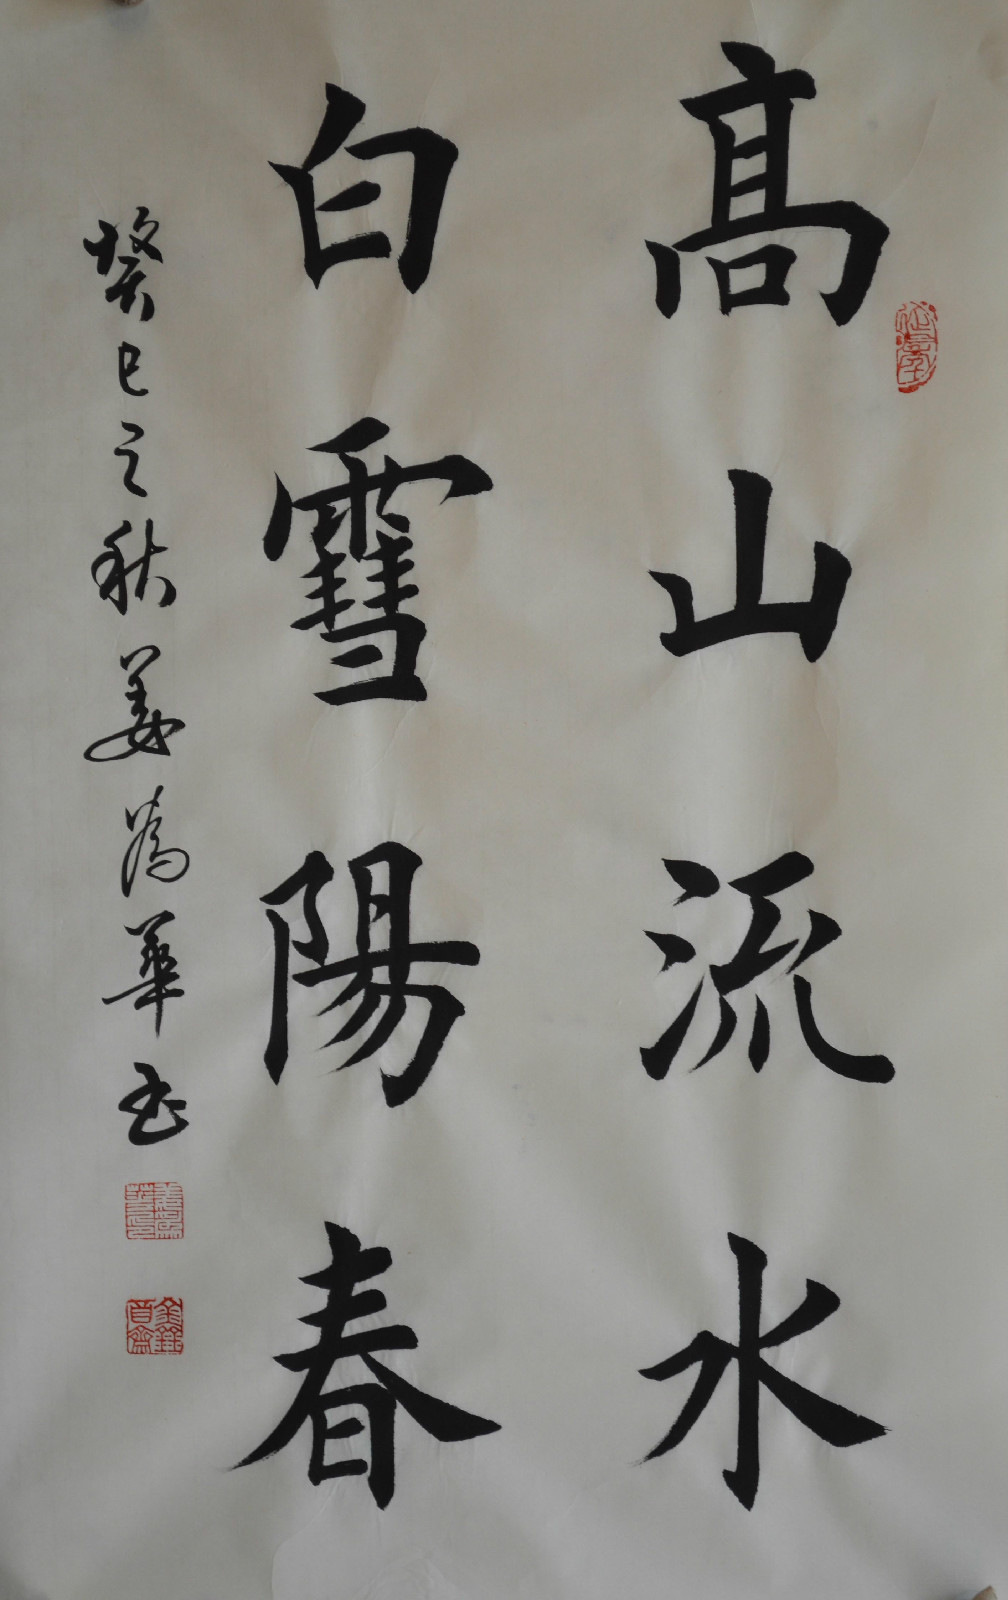 髙山流水
白雪陽春
癸巳之秋姜為華書